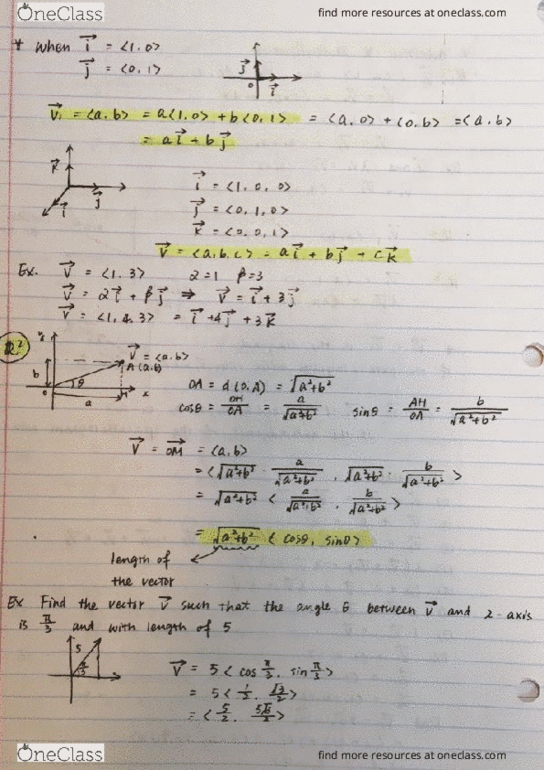 OneClass
find more resources at oneclass.com
* When i⃗ = <1.0>
j⃗ = <0.1>
j⃗
0 i⃗
V⃗ = <a.b> = a<1.0> + b<0.1> = <a.0> + <0.b> = <a.b>
= a i⃗ + b j⃗
k⃗
j⃗
i⃗
i⃗ = <1.0.0>
j⃗ = <0.1.0>
k⃗ = <0.0.1>
V⃗ = <a.b.c> = a i⃗ + b j⃗ + c k⃗
Ex. V⃗ = <1.3> α=1 β=3
V⃗ = α i⃗ + β j⃗ ⇒ V⃗ = i⃗ + 3 j⃗
V⃗ = <1.4.3> = i⃗ + 4 j⃗ + 3 k⃗
R²
V⃗ = <a.b>
A (a.b)
b θ
0 a H x
OA = d(0.A) = √(a²+b²)
cosθ = OH/OA = a/√(a²+b²) sinθ = AH/OA = b/√(a²+b²)
V⃗ = OM⃗ = <a.b>
= <√(a²+b²) · a/√(a²+b²) . √(a²+b²) · b/√(a²+b²)>
= √(a²+b²) <a/√(a²+b²) . b/√(a²+b²)>
= √(a²+b²) <cosθ, sinθ>
length of
the vector
Ex Find the vector V⃗ such that the angle θ between V⃗ and 2-axis
is π/3 and with length of 5
5
π/3
V⃗ = 5<cos π/3 . sin π/3>
= 5<1/2 . √3/2>
= <5/2 . 5√3/2>
OneClass
find more resources at oneclass.com